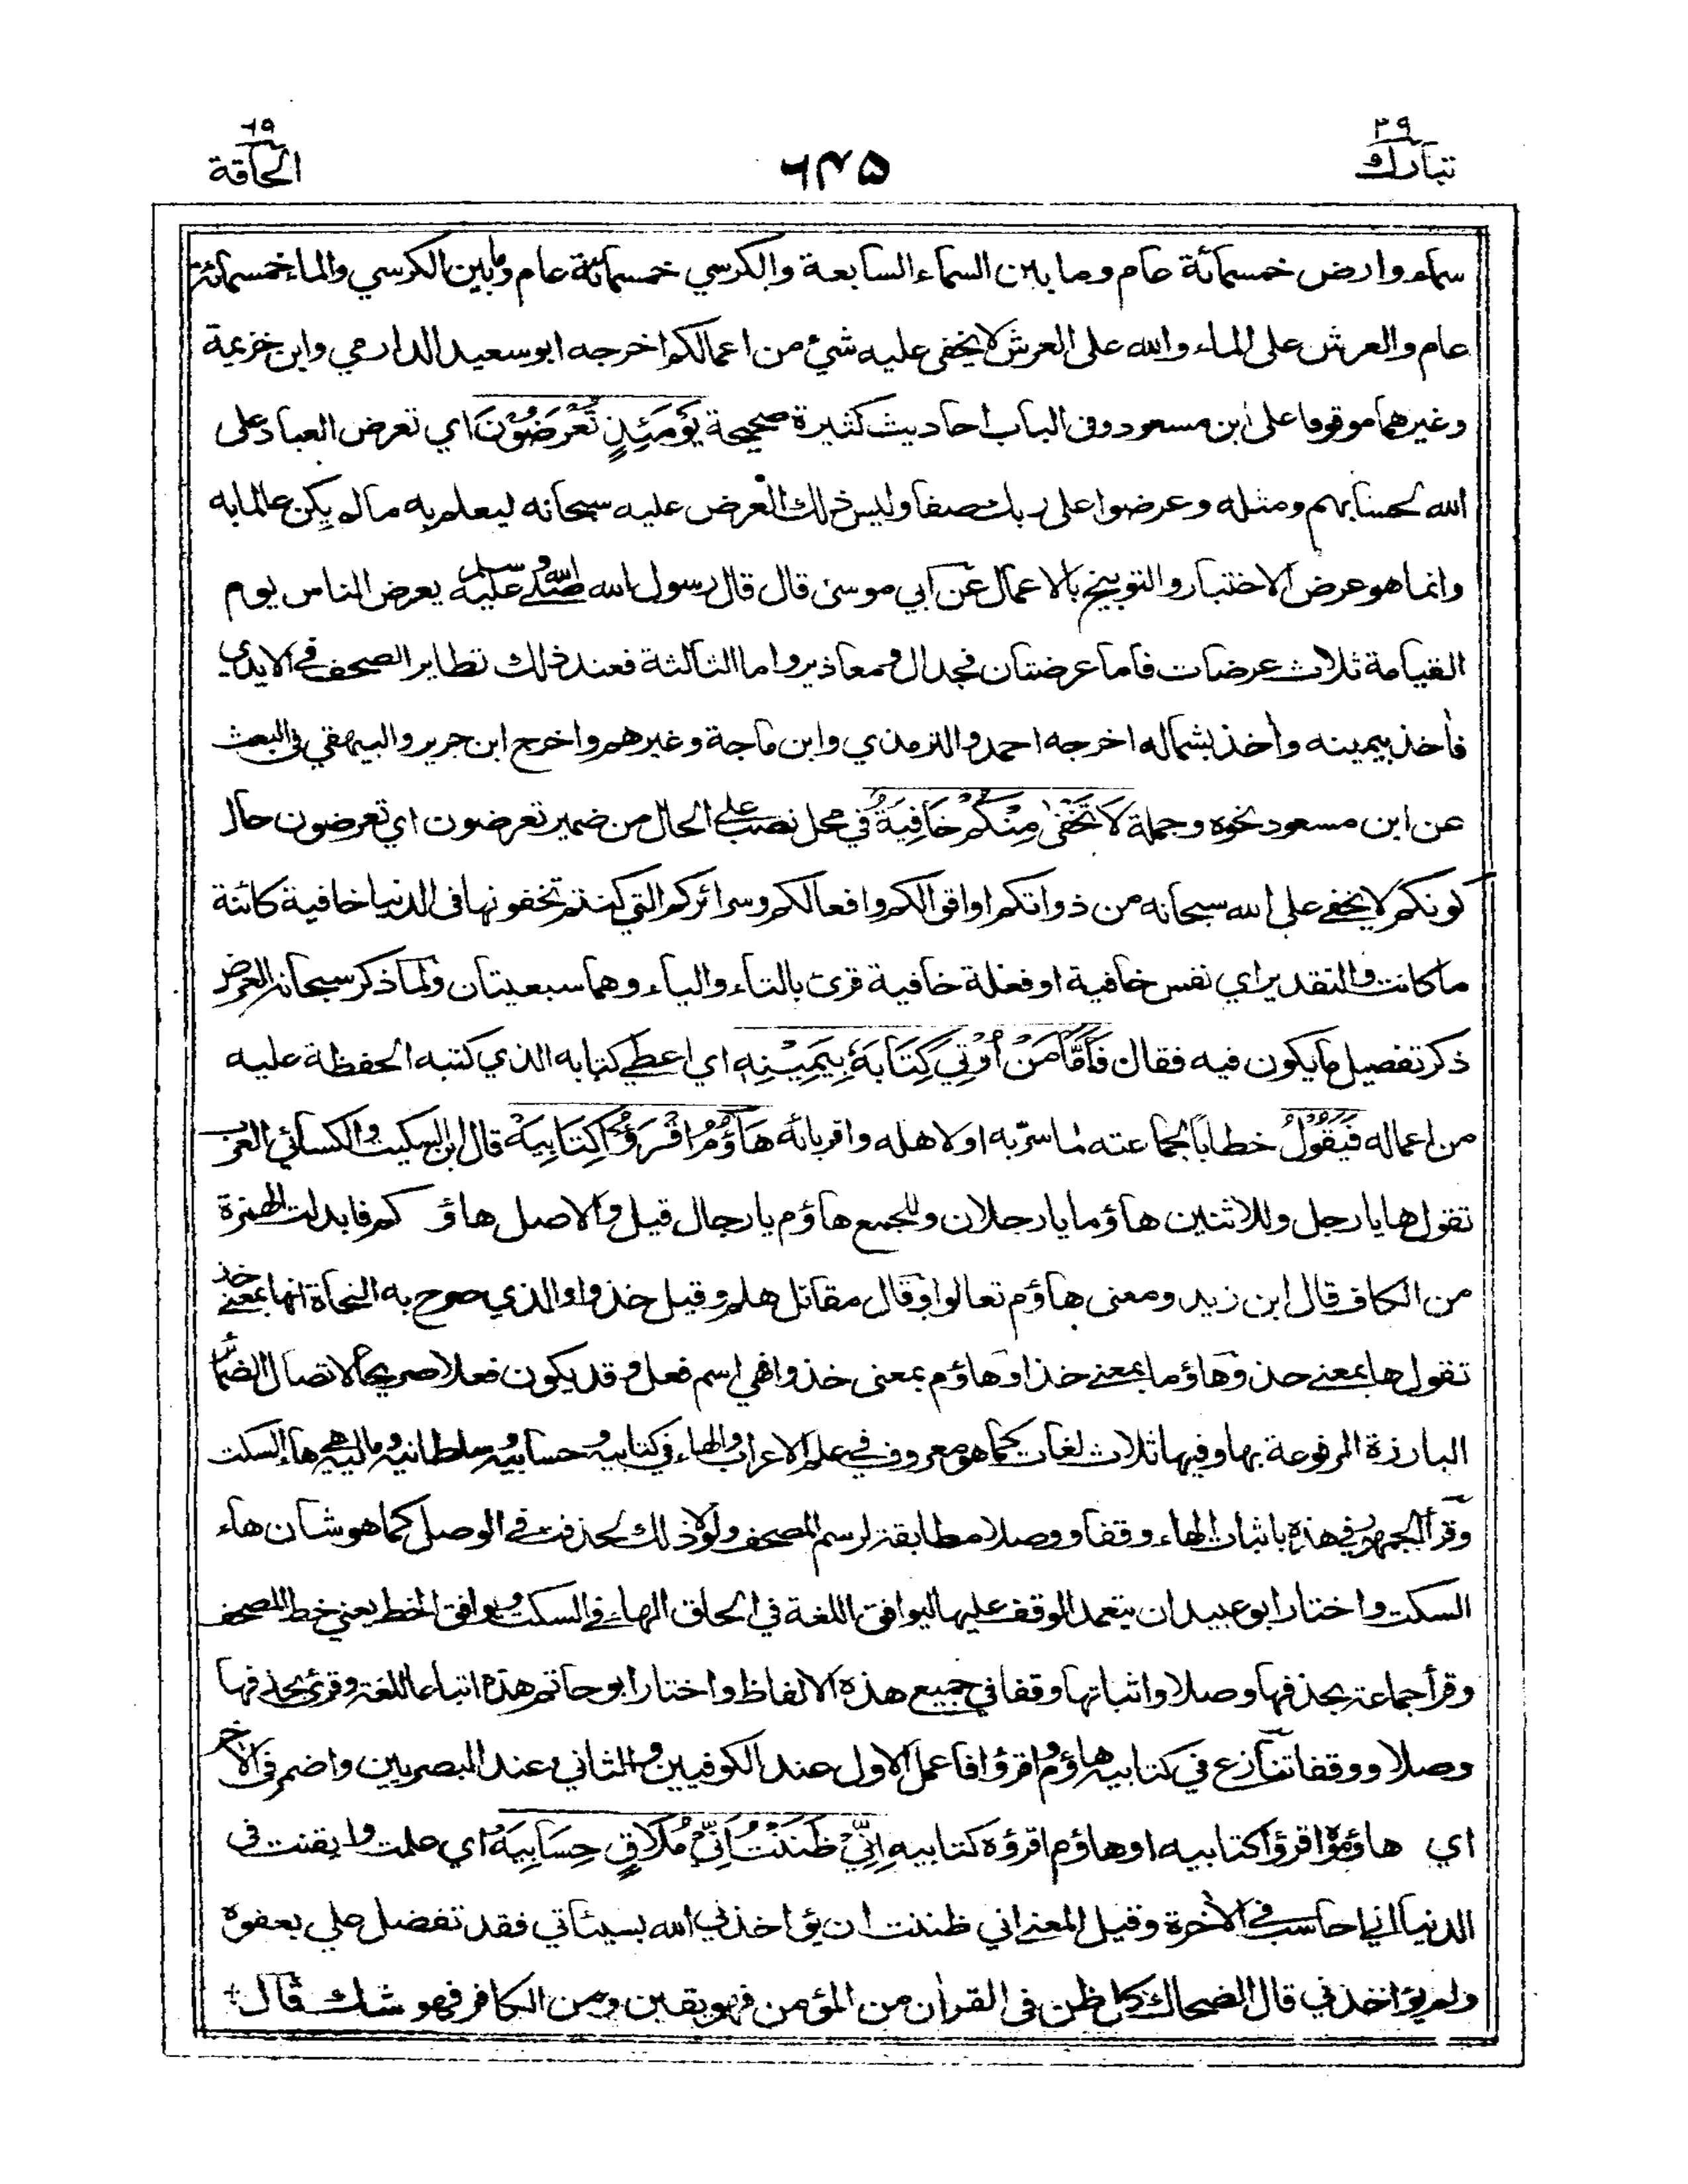 ۲۹
تبارك
۶۴۵
۶۹
الحاقة
سماء وارض خمسمائة عام وما بين السماء السابعة والكرسي خمسمائة عام وما بين الكرسي والماء خمسمائة
عام والعرش على الماء والله على العرش لا يخفى عليه شئ من اعمالكم اخرجه ابو سعيد الدارمي وابن خزيمة
وغيرهما موقوفا على ابن مسعود وفى الباب احاديث كثيرة صحيحة يَوْمَئِذٍ تُعْرَضُوْنَ اي تعرض العباد على
الله لحسابهم ومثله وعرضوا على ربك صفا وليس ذلك العرض عليه سبحانه ليعلم به ما لم يكن عالما به
وانما هو عرض الاختبار والتوبيخ بالاعمال عن ابي موسى قال قال رسول الله صلى الله عليه وسلم يعرض الناس يوم
القيامة ثلاث عرضات فاما عرضتان فجدال ومعاذير واما الثالثة فعند ذلك تطاير الصحف في الايدي
فأخذ بيمينه وأخذ بشماله اخرجه احمد والترمذي وابن ماجة وغيرهم واخرج ابن جرير والبيهقي في البعث
عن ابن مسعود نحوه وجملة لَا تَخْفٰى مِنْكُمْ خَافِيَةٌ في محل نصب على الحال من ضمير تعرضون اي تعرضون حال
كونكم لا يخفى على الله سبحانه من ذواتكم او اقوالكم وافعالكم وسرائركم التي كنتم تخفونها فى الدنيا خافية كائنة
ما كانت والتقدير اي نفس خافية او فعلة خافية قرئ بالتاء والياء وهما سبعيتان ولما ذكر سبحانه العرض
ذكر تفصيل ما يكون فيه فقال فَاَمَّا مَنْ اُوْتِيَ كِتَابَهٗ بِيَمِيْنِهٖ اي اعطي كتابه الذي كتبه الحفظة عليه
من اعماله فَيَقُوْلُ خطابا لجماعته لما سرّ به او لاهله واقربائه هَاؤُمُ اقْرَؤُا كِتَابِيَهْ قال ابن السكيت والكسائي العرب
تقول ها يا رجل وللاثنين هاؤما يا رجلان وللجمع هاؤم يا رجال قيل والاصل هاؤ كم فابدلت الهمزة
من الكاف قال ابن زيد ومعنى هاؤم تعالوا وقال مقاتل هلم وقيل خذوا والذي صرح به النحاة انها بمعنى خذ
تقول ها بمعنى خذ وهاؤما بمعنى خذا وهاؤم بمعنى خذوا فهي اسم فعل وقد يكون فعلا صريحا لاتصال الضمائر
البارزة المرفوعة بها وفيها ثلاث لغات كما هو معروف في علم الاعراب والهاء في كتابيه وحسابيه وسلطانيه وماليه هي هاء السكت
وقرأ الجمهور في هذه باثبات الهاء وقفا ووصلا مطابقة لرسم المصحف ولولا ذلك لحذفت في الوصل كما هو شان هاء
السكت واختار ابو عبيد ان يتعمد الوقف عليها ليوافق اللغة في الحاق الهاء في السكت ويوافق الخط يعني خط المصحف
وقرأ جماعة بحذفها وصلا واثباتها وقفا في جميع هذه الالفاظ واختار ابو حاتم هذه اتباعا للغة وقرئ بحذفها
وصلا ووقفا تنازع في كتابيه هاؤم واقرؤا فاعمل الاول عند الكوفيين والثاني عند البصريين واضمر فى الآخر
اي هاؤموه اقرؤا كتابيه او هاؤم اقرؤه كتابيه اِنِّيْ ظَنَنْتُ اَنِّيْ مُلَاقٍ حِسَابِيَهْ اي علمت وايقنت فى
الدنيا اني احاسب في الآخرة وقيل المعنى اني ظننت ان يؤاخذني الله بسيئاتي فقد تفضل علي بعفوه
ولم يؤاخذني قال الضحاك كل ظن فى القرآن من المؤمن فهو يقين ومن الكافر فهو شك قال